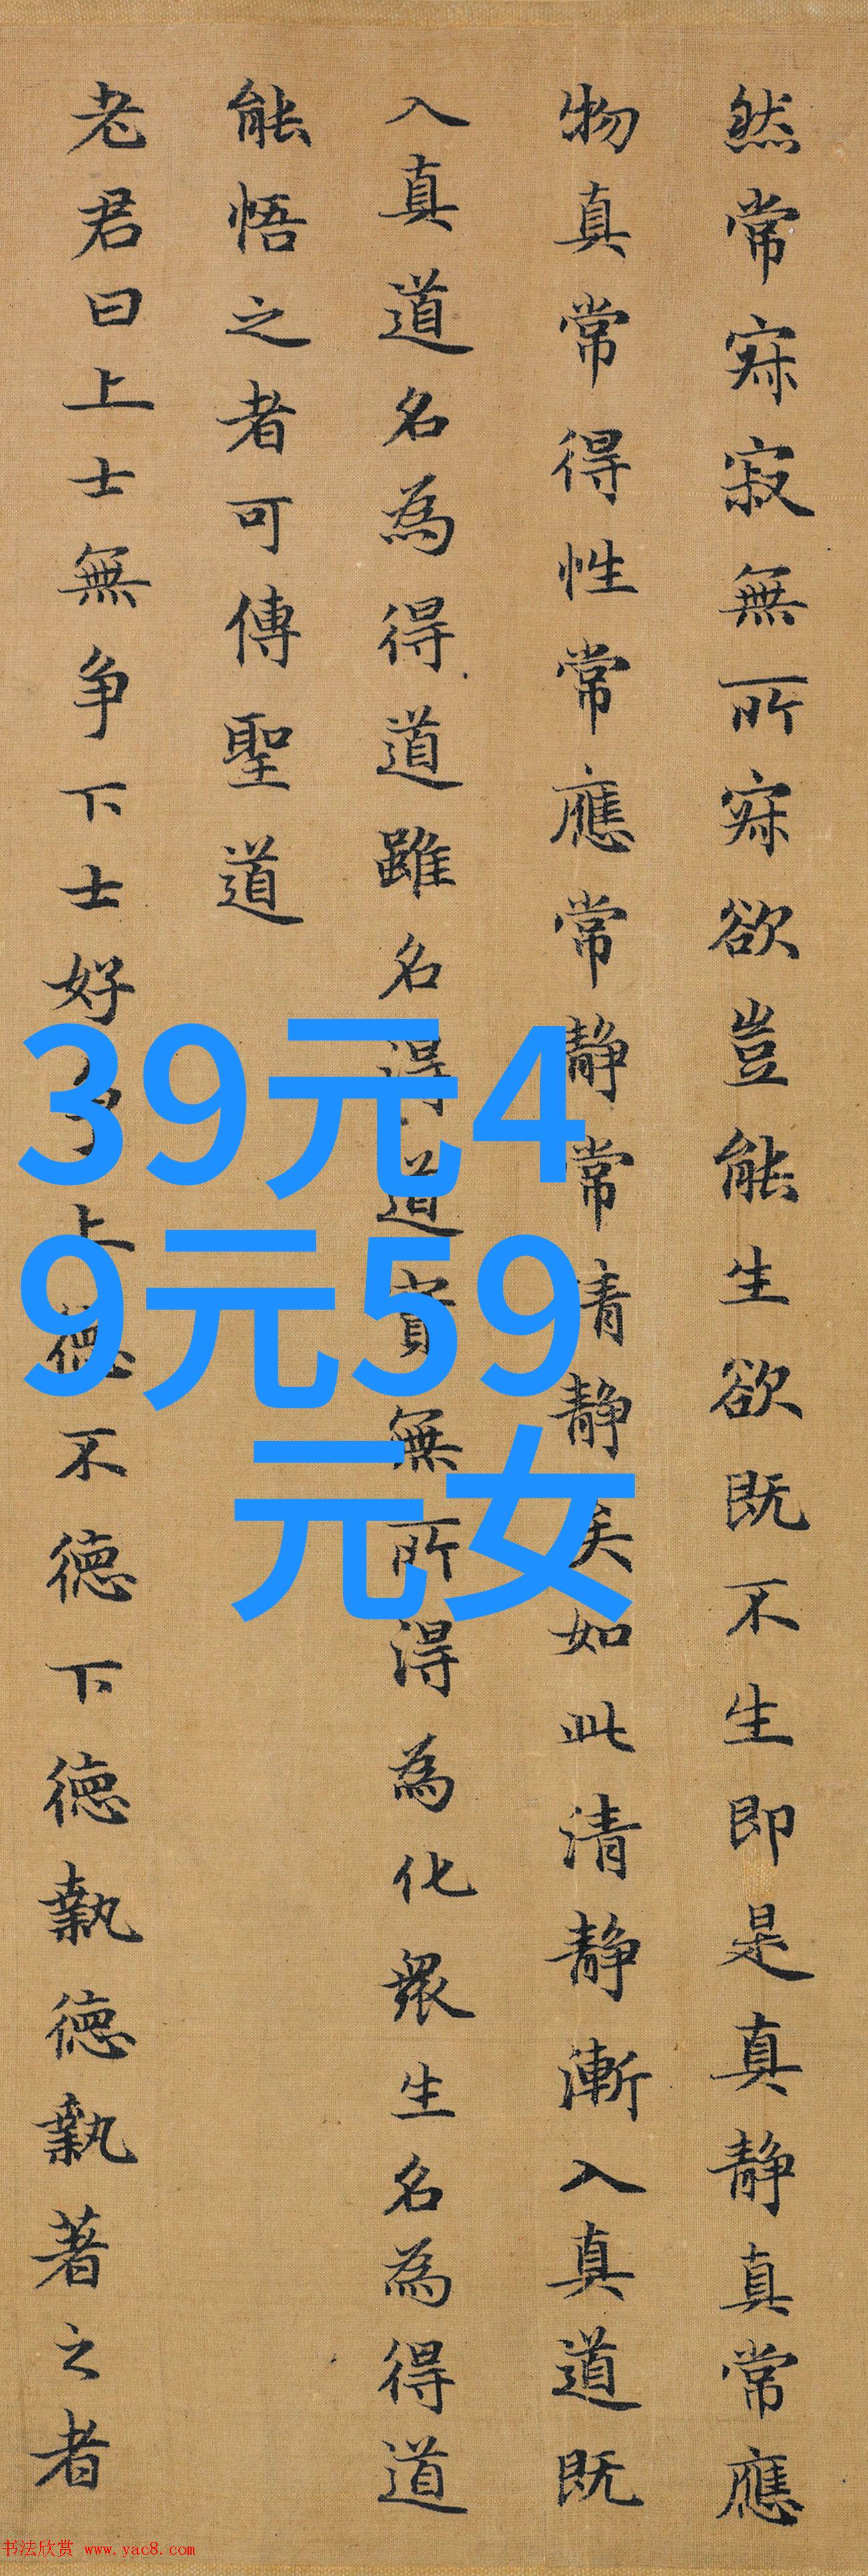 然常寂寂無所寂欲豈能生欲既不生即是真静真常應
物真常得性常應常静常清静矣如此清静漸入真道既
入真道名為得道雖名得道實無所得為化衆生名為得道
能悟之者可傳聖道
老君曰上士無争下士好争上德不德下德執德執著之者
39元4
9元59
元女
书法欣赏 www.yac8.com